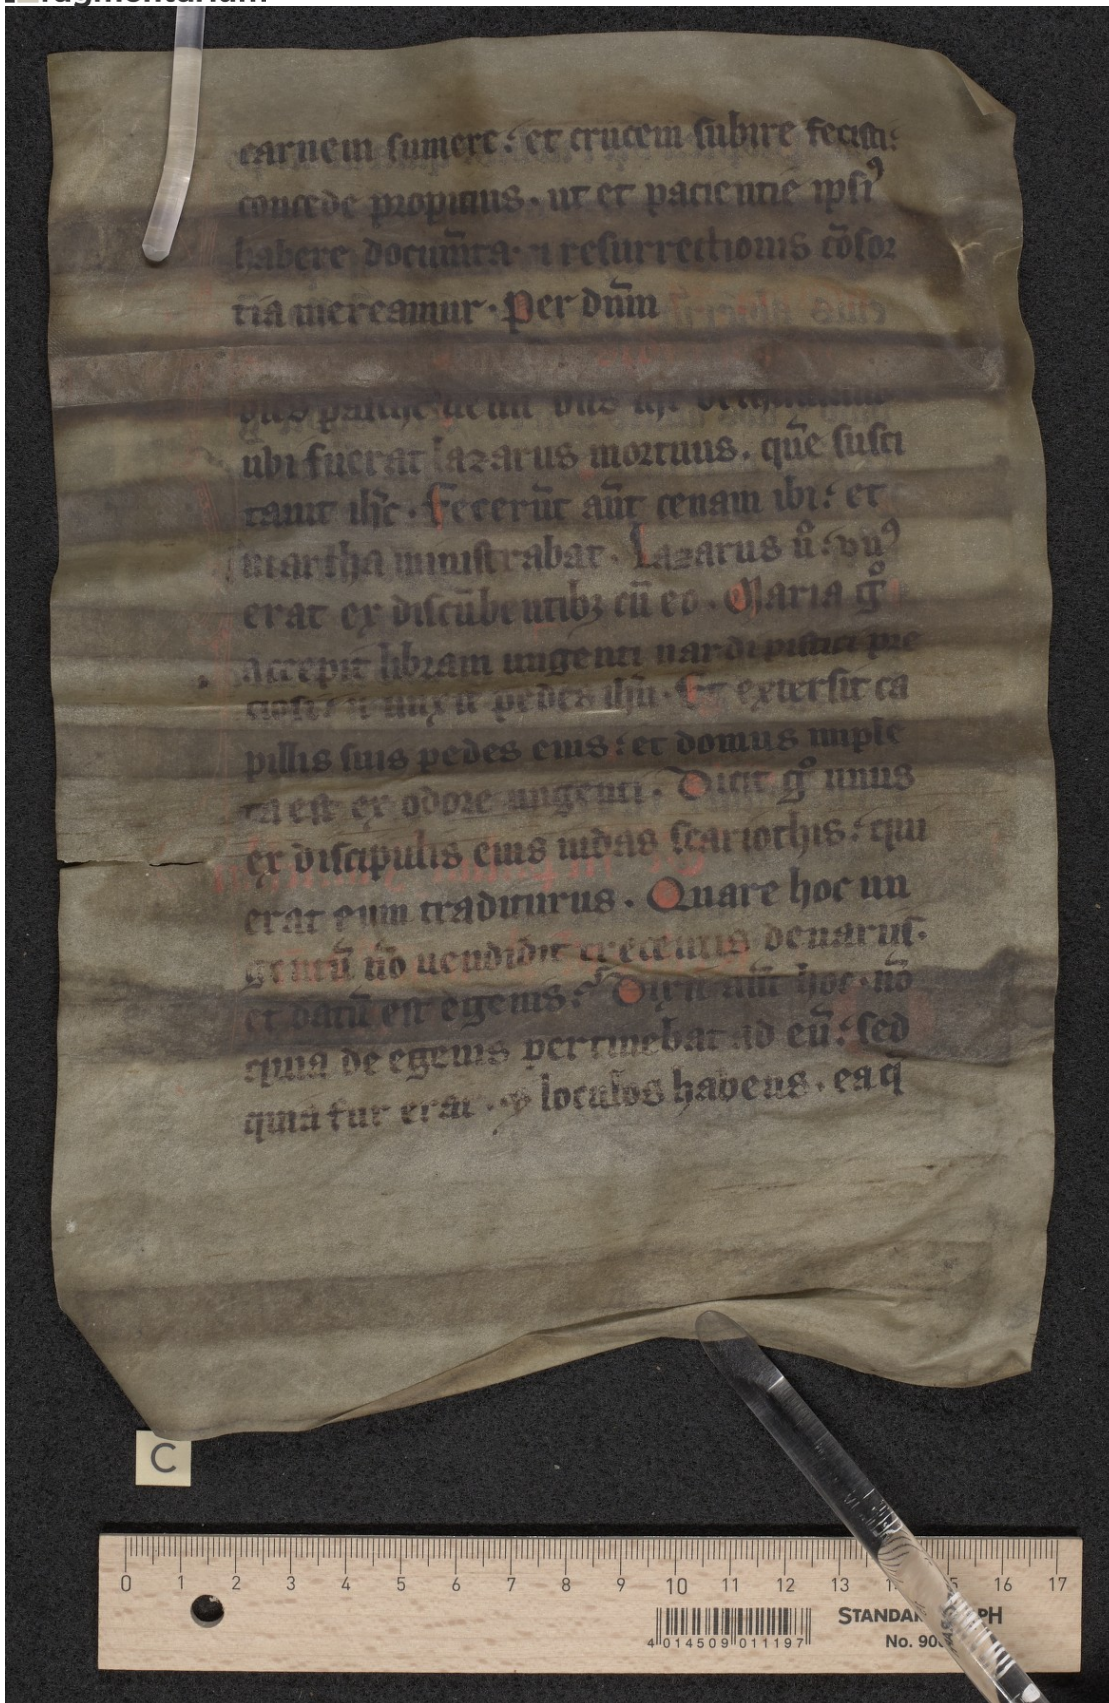 fragmentarium
carnem sumere: et crucem subire fecisti:
concede propitius. ut et pacientie ipsiꝰ
habere documt̄a. ⁊ resurrectionis cōsor
tia mereamur. Per dn̄m
eius
dies pasche uenit
ubi fuerat lazarus mortuus. quē susci
tauit ihc̄. Fecerūt aūt cenam ibi: et
martha ministrabat. Lazarus ů: vnꝰ
erat ex discūbentibꝫ cū eo. Maria g̊
accepit libram ungenti nardi pistici pre
ciosi: ⁊ unxit pedes ihū. Et extersit ca
pillis suis pedes eius: et domus imple
ta est ex odore ungenti. Dicit g̊ unus
ex discipulis eius iudas scariothis: qui
erat eum traditurus. Quare hoc un
gentū nō uendidit trecentis denariis.
et datū est egenis? Dixit aūt hoc. nō
quia de egenis pertinebat ad eū: sed
quia fur erat. ⁊ loculos habens. ea q̄
C
0 1 2 3 4 5 6 7 8 9 10 11 12 13 16 17
4 014509 011197